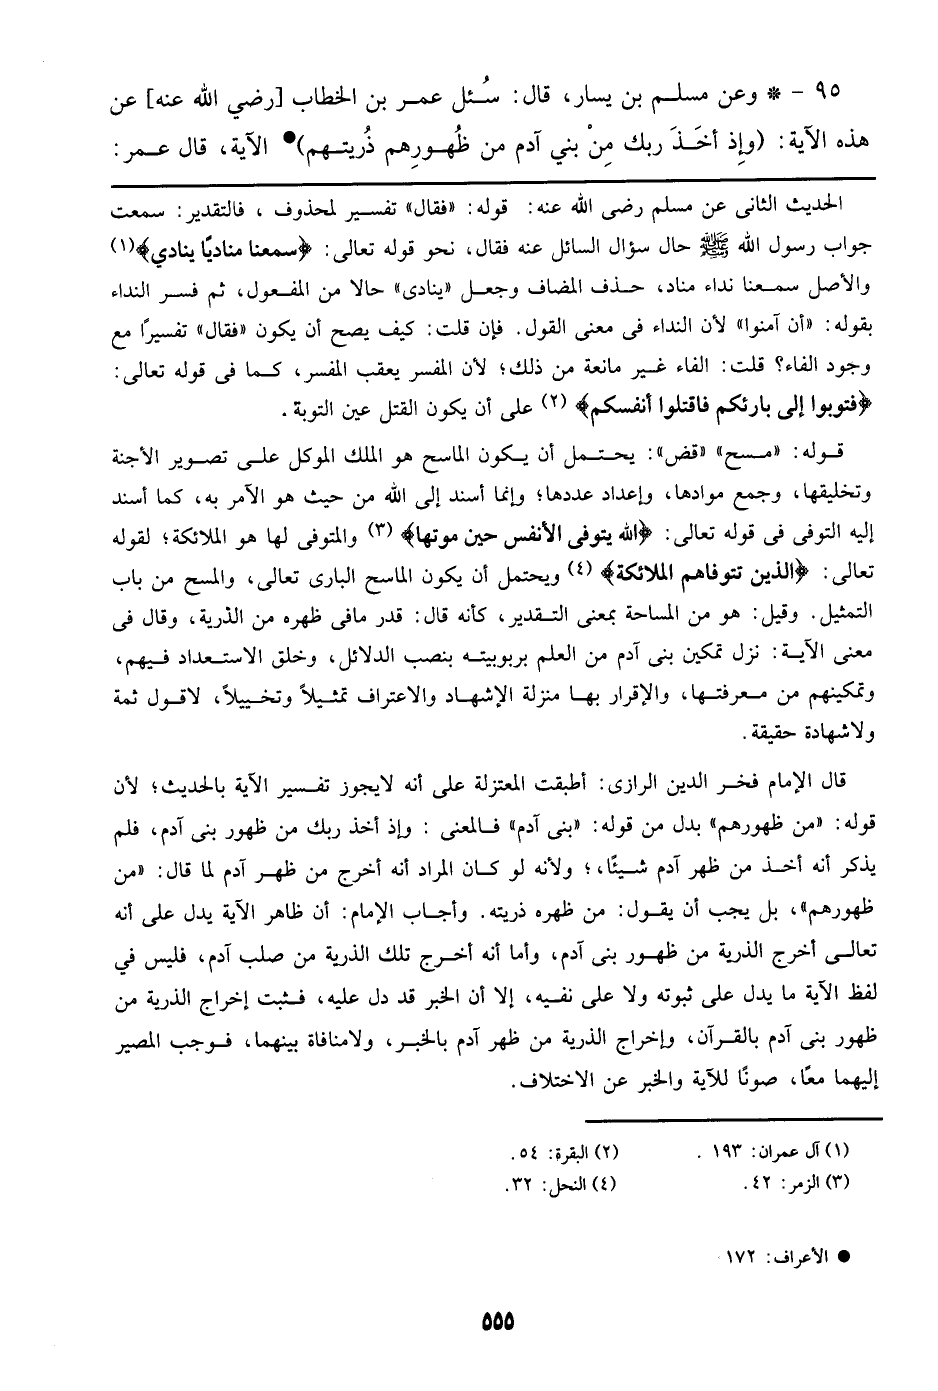 ٩٥ - * وعن مسلم بن يسار، قال: سُئل عمر بن الخطاب [رضي الله عنه] عن
هذه الآية: (وإِذ أخَذَ ربك مِنْ بني آدم من ظُهورِهم ذُريتهم)● الآية، قال عمر:
الحديث الثانى عن مسلم رضى الله عنه: قوله: «فقال» تفسير لمحذوف ، فالتقدير: سمعت
جواب رسول الله ﷺ حال سؤال السائل عنه فقال، نحو قوله تعالى: ﴿سمعنا مناديًا ينادي﴾(١)
والأصل سمعنا نداء مناد، حذف المضاف وجعل «ينادى» حالا من المفعول، ثم فسر النداء
بقوله: «أن آمنوا» لأن النداء فى معنى القول. فإن قلت: كيف يصح أن يكون «فقال» تفسيرًا مع
وجود الفاء؟ قلت: الفاء غير مانعة من ذلك؛ لأن المفسر يعقب المفسر، كما فى قوله تعالى:
﴿فتوبوا إلى بارئكم فاقتلوا أنفسكم﴾ (٢) على أن يكون القتل عين التوبة .
قوله: «مسح» «قض»: يحتمل أن يكون الماسح هو الملك الموكل على تصوير الأجنة
وتخليقها، وجمع موادها، وإعداد عددها؛ وإنما أسند إلى الله من حيث هو الآمر به، كما أسند
إليه التوفى فى قوله تعالى: ﴿الله يتوفى الأنفس حين موتها﴾ (٣) والمتوفى لها هو الملائكة؛ لقوله
تعالى: ﴿الذين تتوفاهم الملائكة﴾ (٤) ويحتمل أن يكون الماسح البارى تعالى، والمسح من باب
التمثيل. وقيل: هو من المساحة بمعنى التقدير، كأنه قال: قدر مافى ظهره من الذرية، وقال فى
معنى الآية: نزل تمكين بنى آدم من العلم بربوبيته بنصب الدلائل، وخلق الاستعداد فيهم،
وتمكينهم من معرفتها، والإقرار بها منزلة الإشهاد والاعتراف تمثيلاً وتخييلاً، لاقول ثمة
ولاشهادة حقيقة.
قال الإمام فخر الدين الرازى: أطبقت المعتزلة على أنه لايجوز تفسير الآية بالحديث؛ لأن
قوله: «من ظهورهم» بدل من قوله: «بنى آدم» فالمعنى : وإذ أخذ ربك من ظهور بنى آدم، فلم
يذكر أنه أخذ من ظهر آدم شيئًا،؛ ولأنه لو كان المراد أنه أخرج من ظهر آدم لما قال: «من
ظهورهم»، بل يجب أن يقول: من ظهره ذريته. وأجاب الإمام: أن ظاهر الآية يدل على أنه
تعالى أخرج الذرية من ظهور بنى آدم، وأما أنه أخرج تلك الذرية من صلب آدم، فليس في
لفظ الآية ما يدل على ثبوته ولا على نفيه، إلا أن الخبر قد دل عليه، فثبت إخراج الذرية من
ظهور بنى آدم بالقرآن، وإخراج الذرية من ظهر آدم بالخبر، ولامنافاة بينهما، فوجب المصير
إليهما معًا، صونًا للآية والخبر عن الاختلاف.
(١) آل عمران: ١٩٣ . (٢) البقرة: ٥٤.
(٣) الزمر: ٤٢. (٤) النحل: ٣٢.
● الأعراف: ١٧٢
٥٥٥